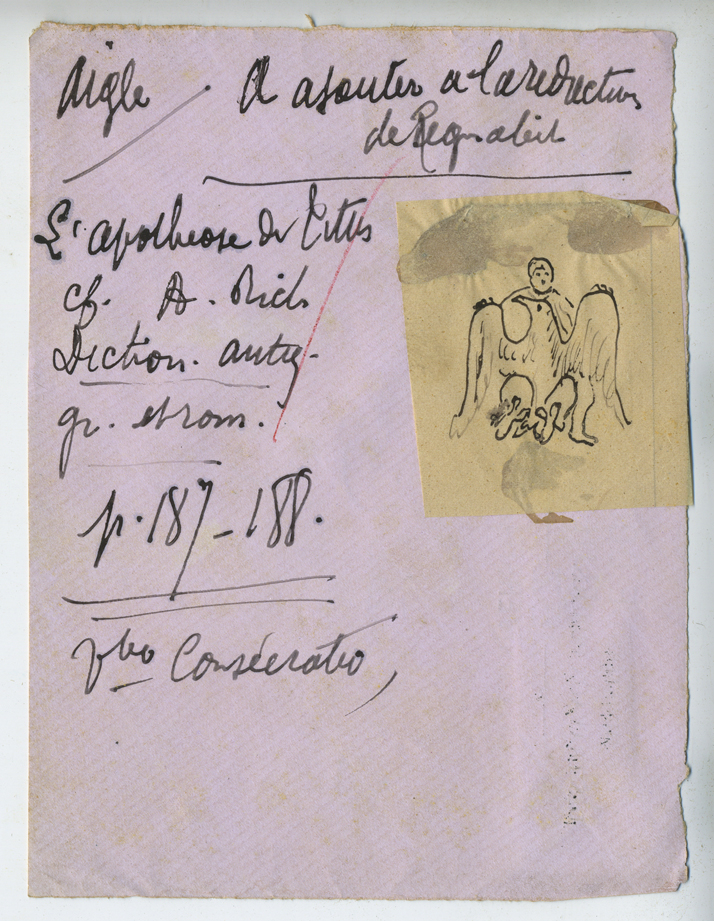 Aigle . A ajouter a la redaction
de Regnabit
L'apotheose de Titus
cf. A. Rich
Diction. antiq.
gr. et rom.
p. 187 - 188.
Vbo Consécratio,